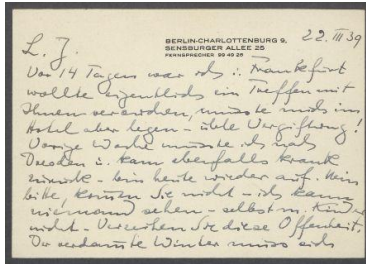 BERLIN-CHARLOTTENBURG 9,
SENSBURGER ALLEE 25
FERNSPRECHER 99 49 26
22. III 39
L. J.
Vor 14 Tagen war ich i. Frankfurt
wollte eigentlich ein Treffen mit
Ihnen verabreden, musste mich im
Hotel aber legen - üble Vergiftung!
Vorige Woche musste ich nach
Dresden u. kam ebenfalls krank
zurück - bin heute wieder auf. Nein
bitte, kommen Sie nicht - ich kann
niemand sehen - selbst m. Kinder
nicht - Verzeihen Sie diese Offenheit.
Der verdammte Winter muss sich